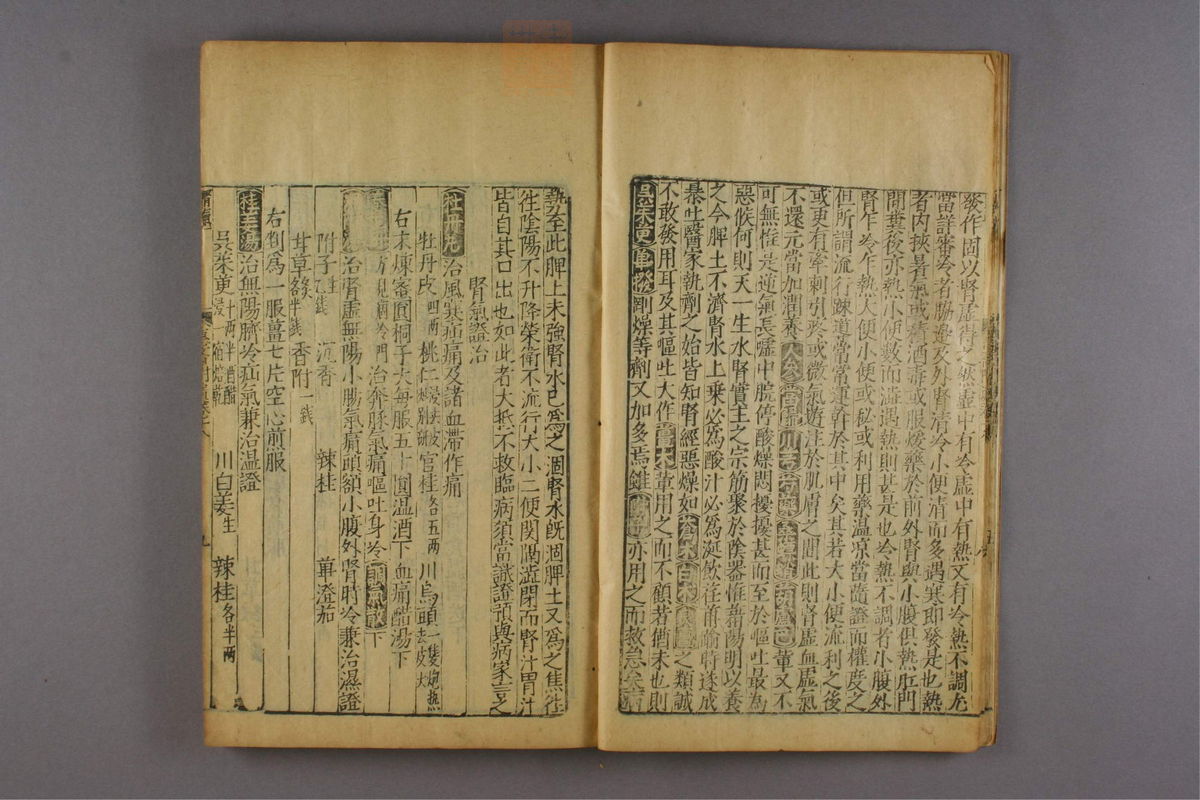 發作固以腎虛得之然虛中有冷虛中有熱又有冷熱不調尤
當詳審冷者脇邊及外腎清冷小便清而多遇寒即發是也熱
者內挾暑氣或積酒毒或服煖藥於前外腎與小腹俱熱肛門
間糞後亦熱小便數而澁遇熱則甚是也冷熱不調者小腹外
腎乍冷乍熱大便小便或秘或利用藥溫凉當隨證而權度之
但所謂流行疎道常常運幹於其中矣其若大小便流利之後
或更有牽刺引疼或微氣遊注於肌膚之間此則腎虛血虛氣
不還元當加潤養人參當歸川芎芍藥軰又不
可無惟是逆氣長噓中脘停酸燥悶擾擾甚而至於嘔吐最為
惡候何則天一生水腎實主之宗筋聚於陰器惟藉陽明以養
之今脾土不濟腎水上乗必為酸汁必為涎飲徃甫喻時遂成
暴吐醫家執劑之始皆知腎經惡燥如蒼朮白朮之類誠
不敢發用耳及其嘔吐大作當朮軰用之而不顧若猶未也則
吳茱萸蓽撥剛燥等劑又加多焉雖附子亦用之而救急矣病
勢至此脾土未強腎水已為之涸腎水既涸脾土又為之焦徃
徃陰陽不升降榮衛不流行大小二便関隔澁閉而腎汁胃汁
皆自其口出也如此者大抵不救臨病須當識證預與病家言之
腎氣證治
牡丹丸治風寒疝痛及諸血滯作痛
牡丹皮四兩 桃仁 官桂各五兩 川烏頭一隻炮熱去皮尖
右末煉蜜圓桐子大每服五十圓温酒下血痛醋湯下
治奔豚氣痛嘔吐身冷 下
治腎虛無陽小腸氣痛頭額小腹外腎時冷兼治濕證
附子 沉香 辣桂 蓽澄茄
甘草各半錢 香附一錢
右剉為一服薑七片空心煎服
桂姜湯治無陽臍冷疝氣兼治温證
吳茱萸十兩半醋半 浸一宿焙 川白姜生 辣桂各半兩